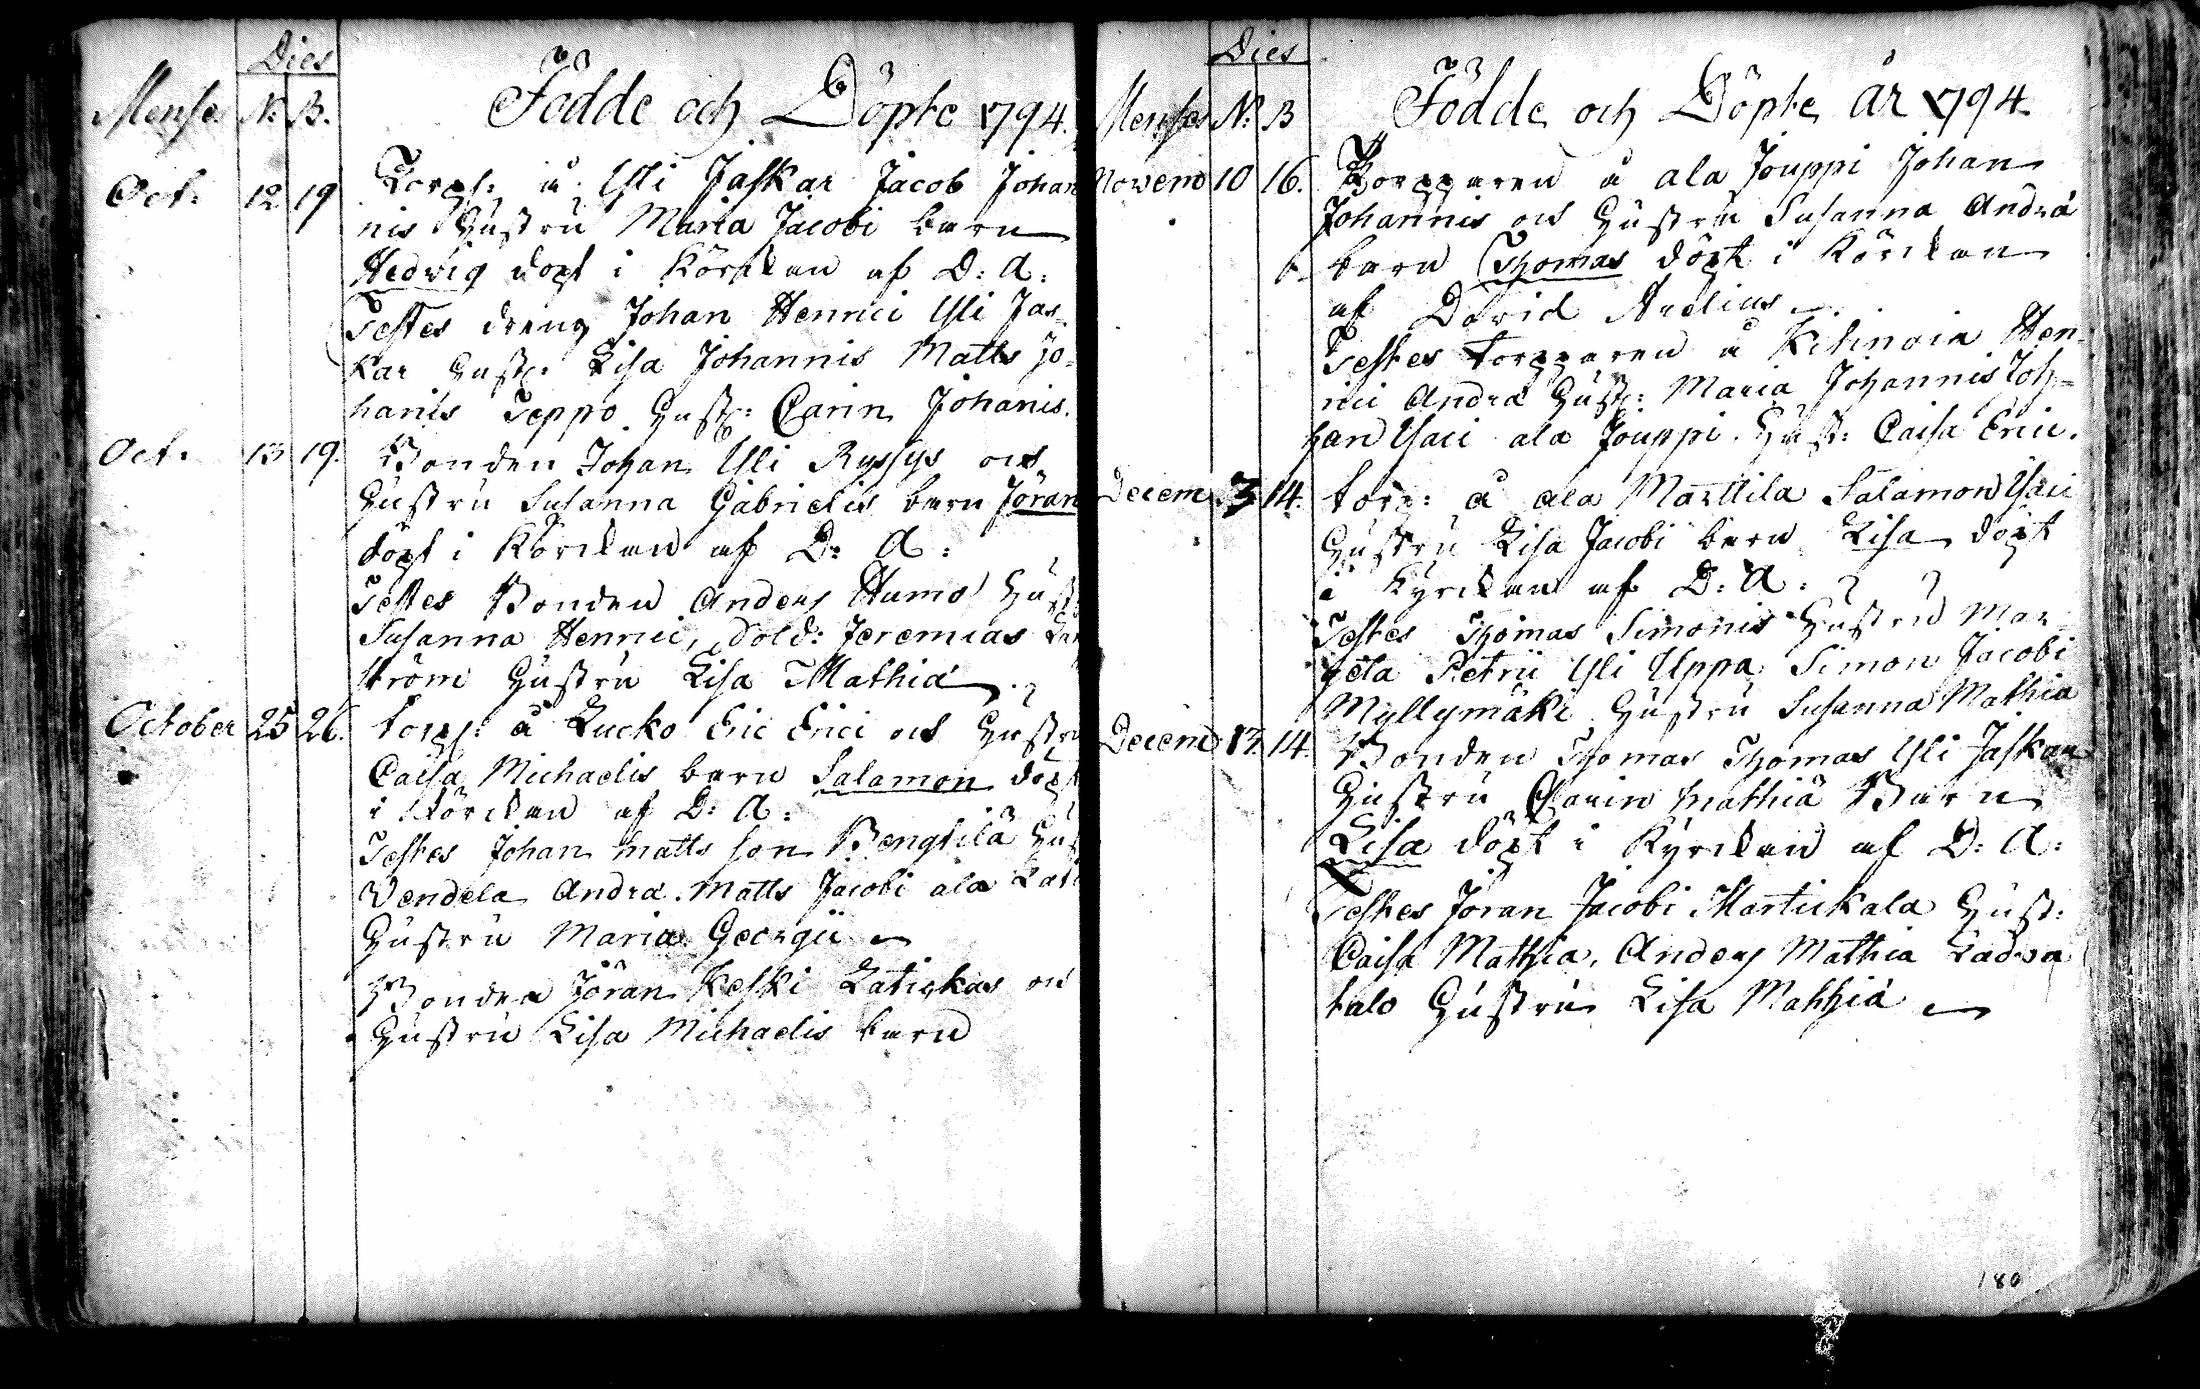 Dies
Mense N. B. Födde och Döpte 1794.
Oct. 12 19 Torp: å Yli Jaskar Jacob Johan
nis Hustru Maria Jacobi barn
Hedvig döpt i Körckan af D: A:
Testes dreng Johan Henrici Yli Jas-
kar Hust: Lisa Johannis Matts Jo-
hanis Seppo Hust: Carin Johanis.
Oct. 13 19. Bonden Johan Yli Ryssys och
Hustru Susanna Gabrielis barn Jöran
döpt i Körckan af D: A:
Testes Bonden Anders Humo Hust
Susanna Henrici, Sold: Jeremias
ström Hustru Lisa Mathiä
October 25 26. torp: å Lucko Eric Erici och Hustru
Caisa Michaelis barn Salamon döpt
i Körckan af D: A:
Testes Johan Matts son Bengtilä Hus
Vendela Andrä. Matts Jacobi ala
Hustru Maria Georgii
Bonden Jöran Keski Latickas och
Hustru Lisa Michaelis barn
Dies
Menses N. B Födde och Döpte år 1794
Novem 10 16. Torpparen å ala Jouppi Johan
Johannis och Hustru Susanna Andrä
barn Thomas döpt i Körckan
af David Aulius
Testes torpparen å Kitinoia Hen-
rici Andrä Hust: Maria Johannis Joh-
han Ysaci ala Jouppi. Hust: Caisa Erici.
Decem 3 14. torp: å ala Marttila Salamon Ysaci
Hustru Lisa Jacobi barn Lisa döpt
i Kyrckan af D: A:
Testes Thomas Simonis Hustru Mar
geta Petrii Yli Uppa Simon Jacobi
Myllymäki Hustru Susanna Mathia
Decem 13. 14. Bonden Thomas Thomas Yli Jaskan
Hustru Carin Mathiä Barn
Lisa döpt i Kyrckan af D: A:
Testes Jöran Jacobi Martickala Hust:
Caisa Mathia, Anders Mathia Ladva
talo Hustru Lisa Mathiä
180